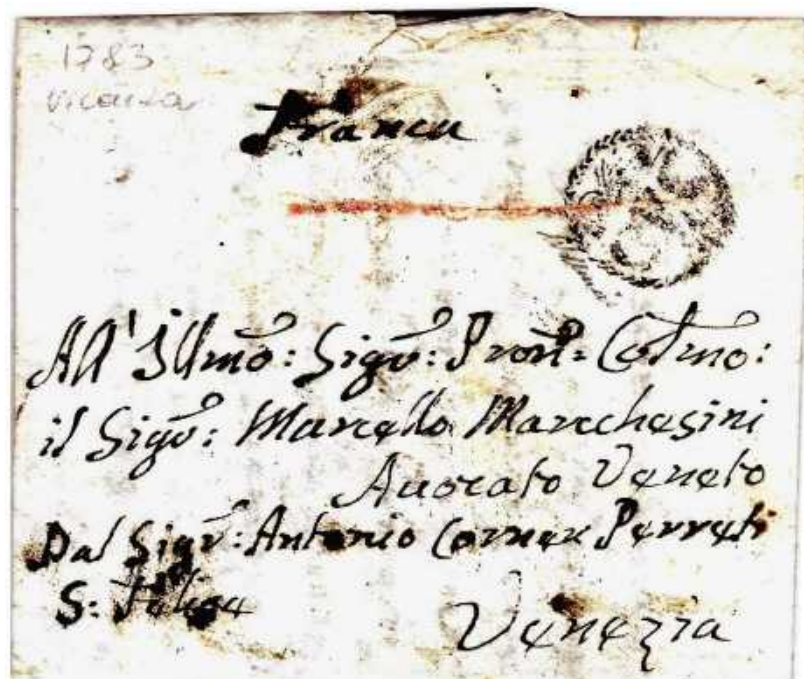 1783
Vicenza
Franca
All' Illmo: Sigr: Pron: Colmo:
il Sigr: Marcello Marchesini
Auocato Veneto
Dal Sigr: Antonio Corner
S: Felice
Venezia